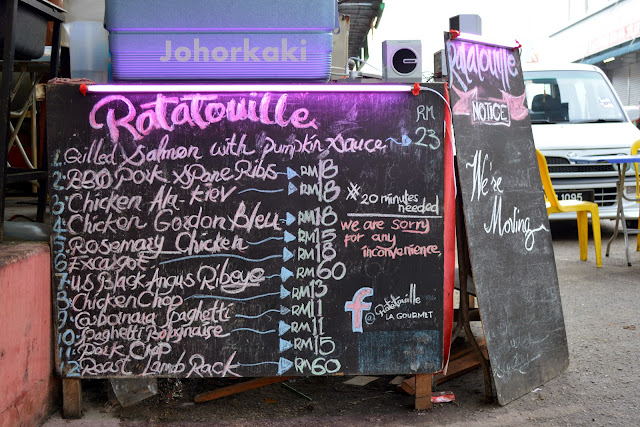 Johorkaki
Ratatouille
RM
1. Grilled Salmon with Pumpkin Sauce 23
2 BBQ Pork Spare Ribs RM18
3 Chicken Ala-Kiev RM18
4 Chicken Gordon Bleu RM18
5 Rosemary Chicken RM15
6 Escalot RM18
7 US Black Angus Ribeye RM60
8 Chicken Chop RM13
9 Carbonara Spaghetti RM11
10 Spaghetti Bolognaise RM11
11 Pork Chop RM15
12 Roast Lamb Rack RM60
* 20 minutes
needed
we are sorry
for any
inconvenience.
f Ratatouille
@ LA GOURMET
Ratatouille
NOTICE
We're
Moving
1095